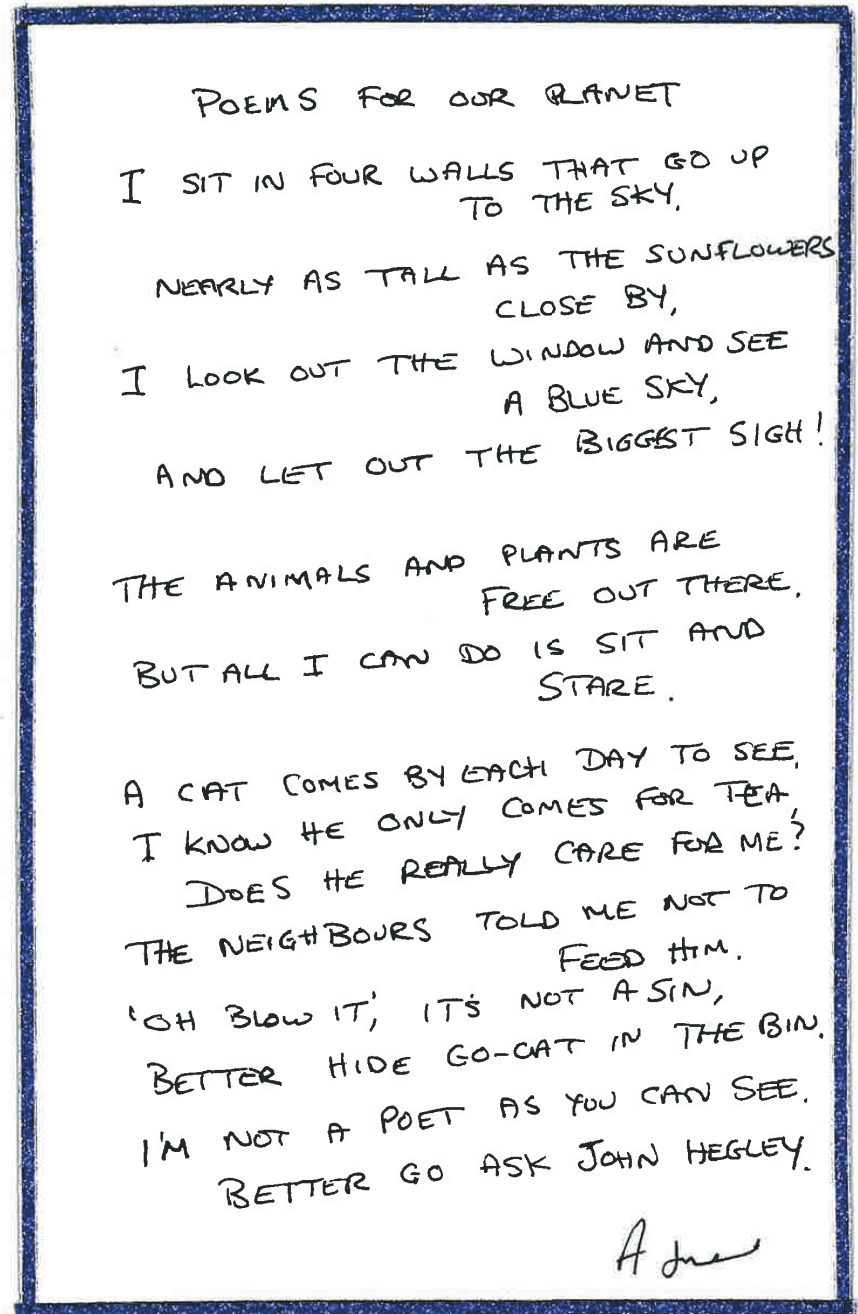 POEMS FOR OUR PLANET
I SIT IN FOUR WALLS THAT GO UP
TO THE SKY,
NEARLY AS TALL AS THE SUNFLOWERS
CLOSE BY,
I LOOK OUT THE WINDOW AND SEE
A BLUE SKY,
AND LET OUT THE BIGGEST SIGH!
THE ANIMALS AND PLANTS ARE
FREE OUT THERE,
BUT ALL I CAN DO IS SIT AND
STARE.
A CAT COMES BY EACH DAY TO SEE,
I KNOW HE ONLY COMES FOR TEA,
DOES HE REALLY CARE FOR ME?
THE NEIGHBOURS TOLD ME NOT TO
FEED HIM.
'OH BLOW IT', IT'S NOT A SIN,
BETTER HIDE GO-CAT IN THE BIN.
I'M NOT A POET AS YOU CAN SEE.
BETTER GO ASK JOHN HEGLEY.
A